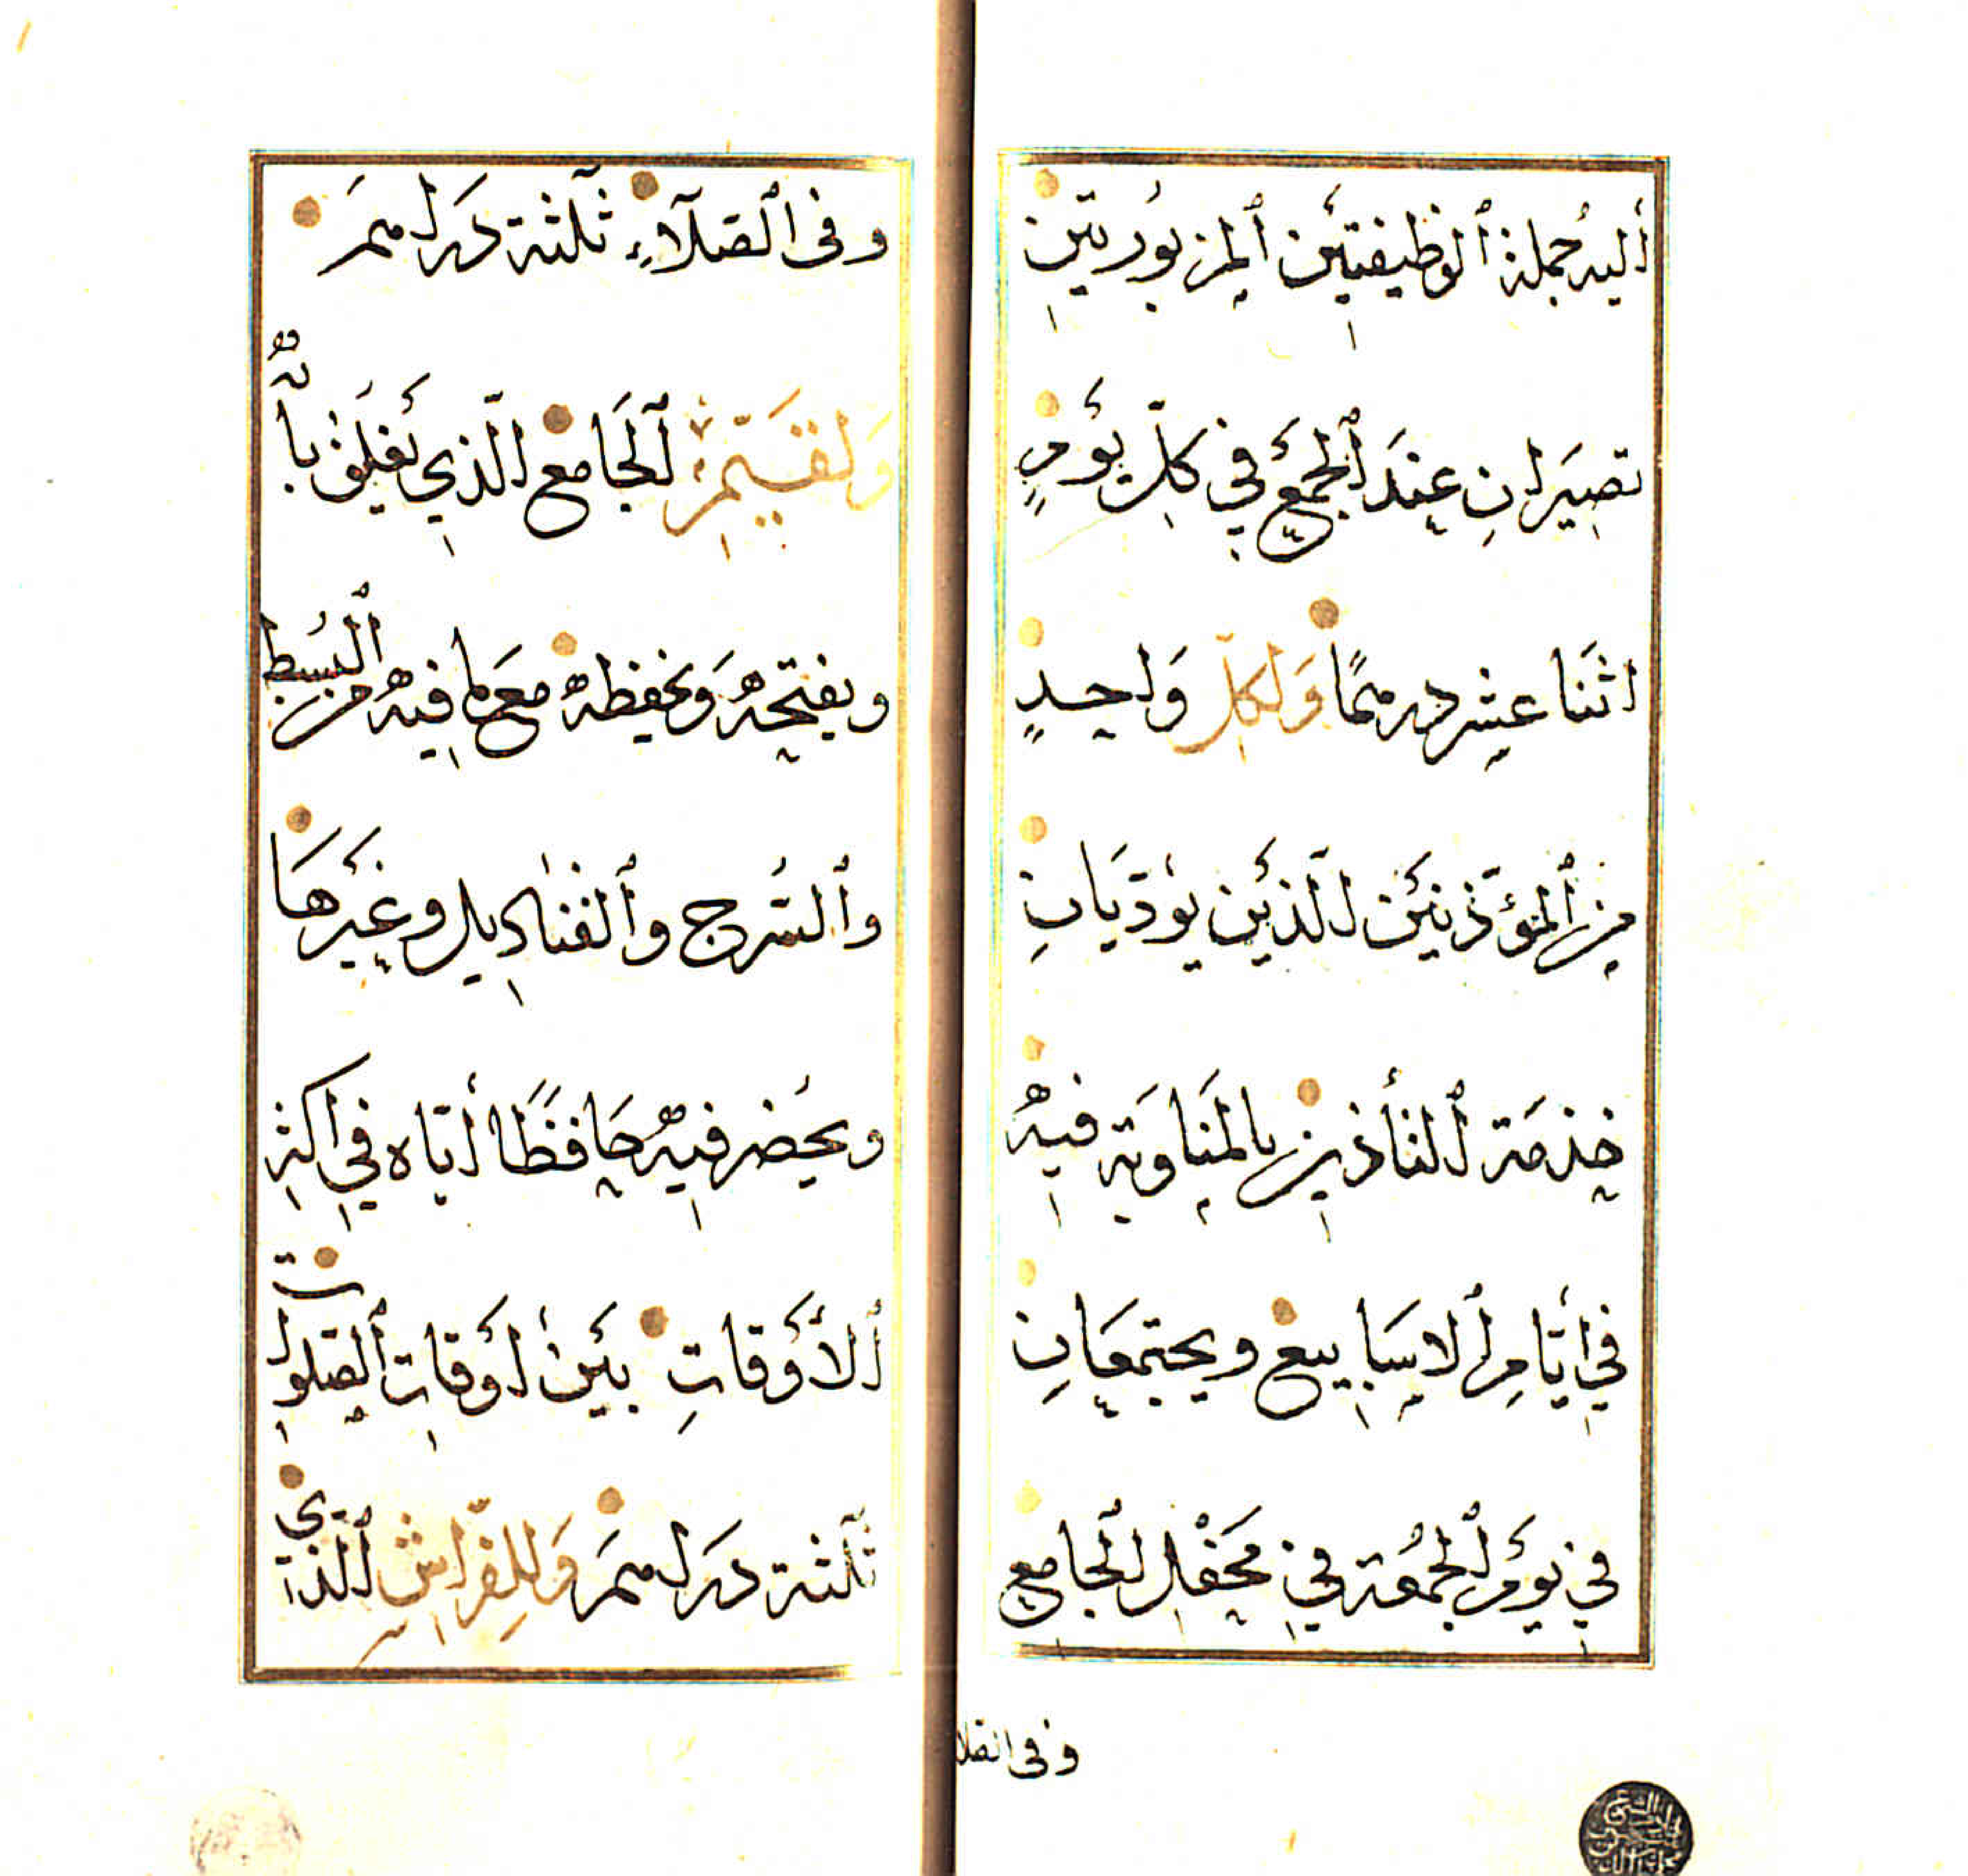 أليه جملة ٱلوظيفتين ٱلمزبورتين
تصيران عند ٱلجمع في كل يوم
اثنا عشر درهمًا ولكل واحد
من ٱلمؤذنين اللذين يؤديان
خدمة ٱلتأذين بالمناوبة فيه
في أيام ٱلاسابيع ويجتمعان
في يوم ٱلجمعة في محفل ٱلجامع
وفى الصلا
وفى ٱلصلآء ثلثة دراهم
ولقيم ٱلجامع الذي يغلق بابه
ويفتحه ويحفظه مع ما فيه من ٱلبسط
وٱلسرج وٱلقناديل وغيرها
ويحضر فيه حافظًا أياه في اكثر
ٱلأوقات بين أوقات ٱلصلوات
ثلثة دراهم وللفراش ٱلذي